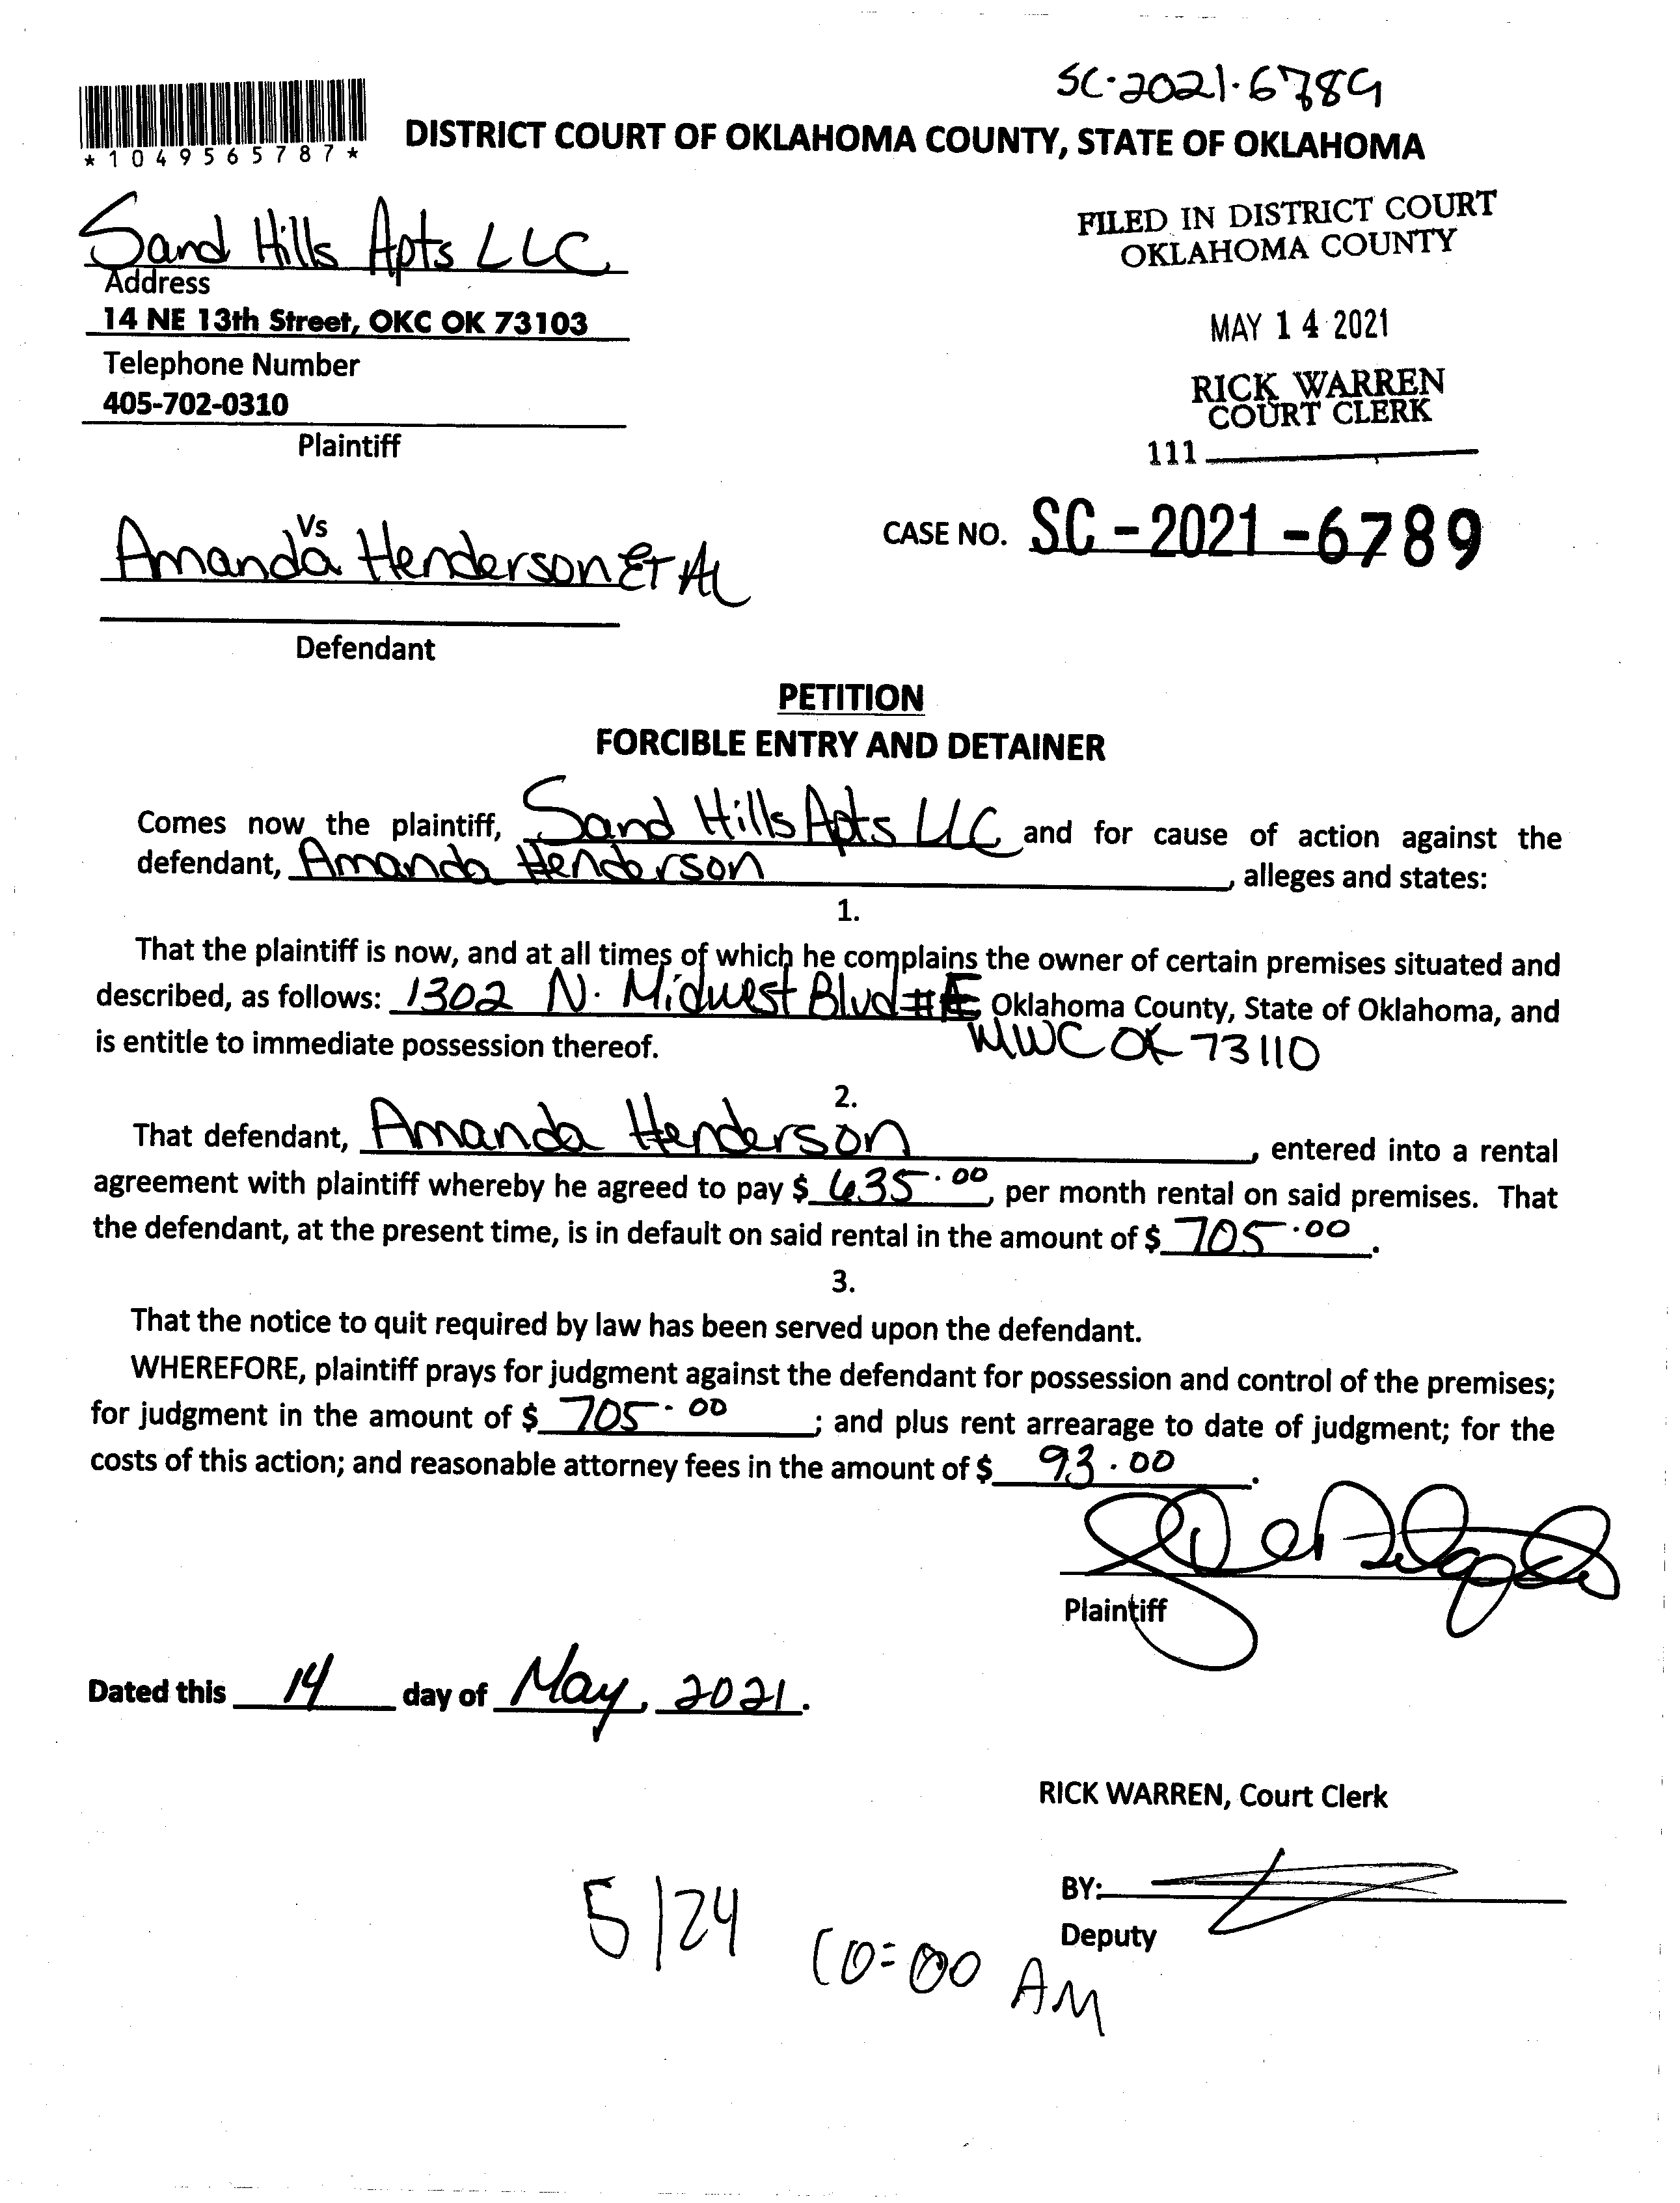 SC-2021-6789
*1049565787*
DISTRICT COURT OF OKLAHOMA COUNTY, STATE OF OKLAHOMA
Sand Hills Apts LLC
Address
14 NE 13th Street, OKC OK 73103
Telephone Number
405-702-0310
Plaintiff
FILED IN DISTRICT COURT
OKLAHOMA COUNTY
MAY 14 2021
RICK WARREN
COURT CLERK
111
Vs
Amanda Henderson ET AL
Defendant
CASE NO. SC-2021-6789
PETITION
FORCIBLE ENTRY AND DETAINER
Comes now the plaintiff, Sand Hills Apts LLC and for cause of action against the
defendant, Amanda Henderson, alleges and states:
1.
That the plaintiff is now, and at all times of which he complains the owner of certain premises situated and
described, as follows: 1302 N. Midwest Blvd # Oklahoma County, State of Oklahoma, and
is entitle to immediate possession thereof. MWC OK 73110
2.
That defendant, Amanda Henderson, entered into a rental
agreement with plaintiff whereby he agreed to pay $ 635.00, per month rental on said premises. That
the defendant, at the present time, is in default on said rental in the amount of $ 705.00.
3.
That the notice to quit required by law has been served upon the defendant.
WHEREFORE, plaintiff prays for judgment against the defendant for possession and control of the premises;
for judgment in the amount of $ 705.00; and plus rent arrearage to date of judgment; for the
costs of this action; and reasonable attorney fees in the amount of $ 93.00.
Plaintiff
Dated this 14 day of May, 2021.
RICK WARREN, Court Clerk
BY:
Deputy
5/24 10:00 AM